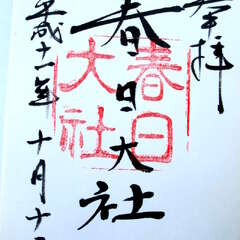 奉拝
春日大社
春日大社
平成十一年 十月十